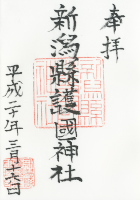 奉拝
新潟縣護國神社
平成二十年三月十六日